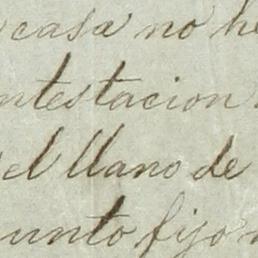 casa no he
ntestacion
el llano de
unto fijo